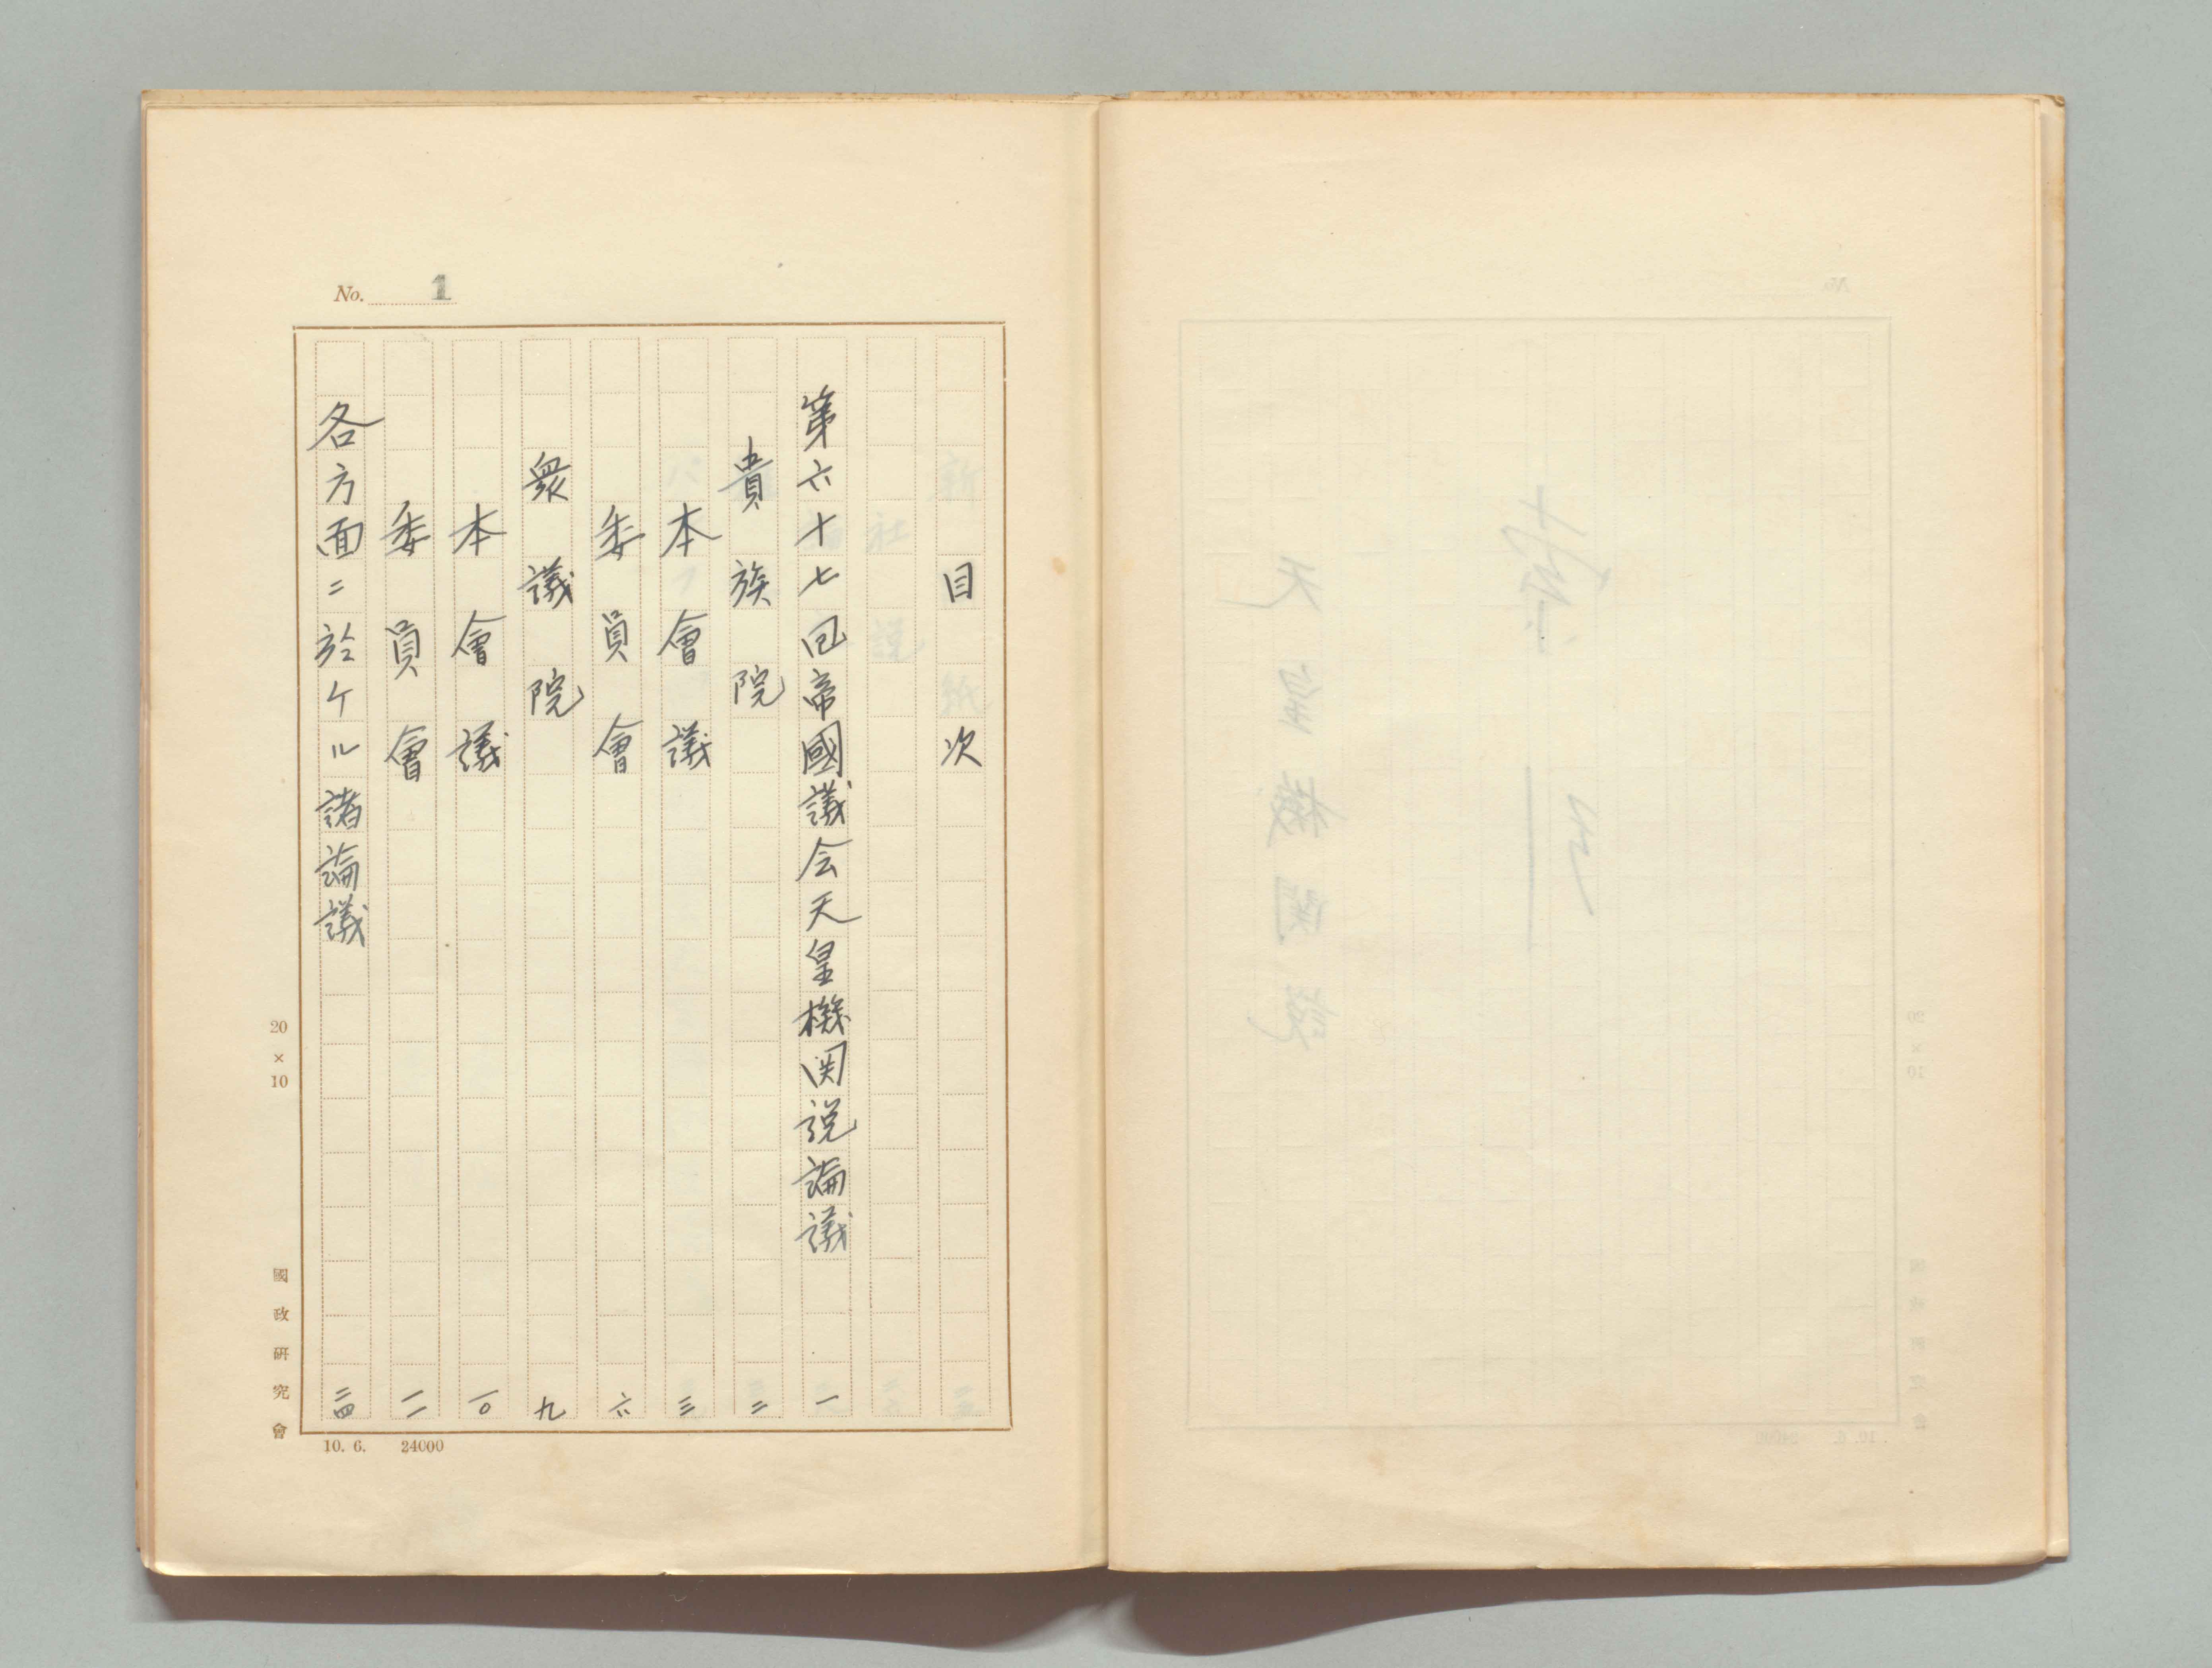 No. 1
目次
第六十七回帝國議会天皇機関説論議 一
貴族院 二
本會議 三
委員會 六
衆議院 九
本會議 一〇
委員會 一一
各方面ニ於ケル諸論議 二四
20×10
國政研究會
10. 6. 24000